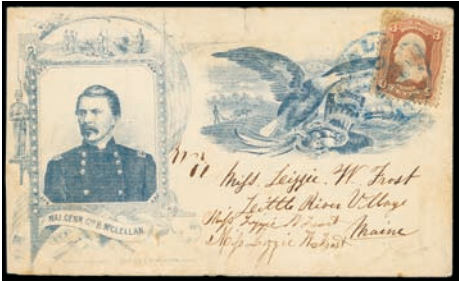 MAJ. GENR. GEO. B. McCLELLAN.
3 3
Miss. Lizzie. W. Frost
Little River Village
Maine
Miss Lizzie W Frost
Miss Lizzie W Frost